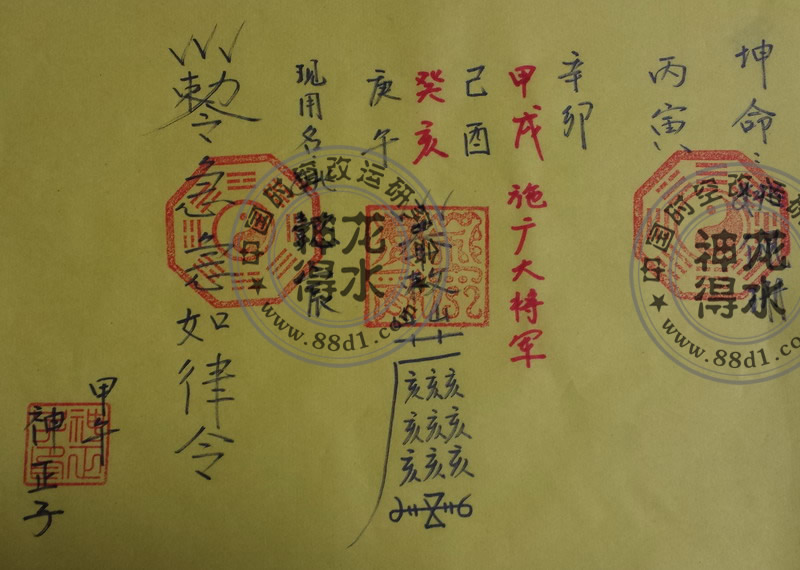 坤命：
丙寅
辛卯
甲戌 施广大将军
己酉
癸亥
庚午
现用名
亥亥亥
亥亥亥
亥亥亥
敕令急急如律令
甲午
神正子
中国时空改运研
神龙
得水
www.88d1.com
中国时空改运研
神龙
得水
www.88d1.